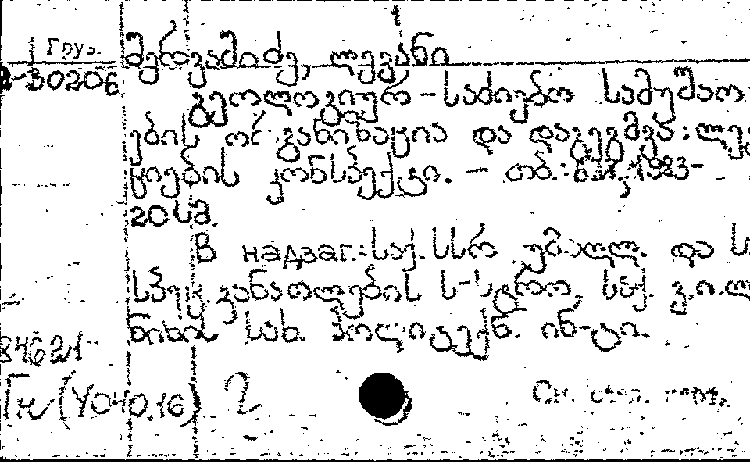 Груз.
შერვაშიძე, ლევანი
2-30206
გეოლოგიურ-საძიებო სამუშაო-
ების ორგანიზაცია და დაგეგმვა: ლექ-
ციების კონსპექტი. – თბ.: 1983-
20 სმ.
В надзаг.: საქ. სსრ უმაღლ. და ს
სპეც. განათლების ს-ტრო, საქ. ვ.ი. ლ
ნინის სახ. პოლიტექნ. ინ-ტი.
84621
Гн (У040.16) 2
См. след. карт.